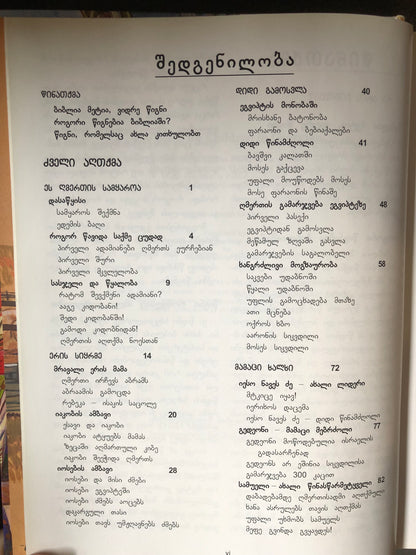 შედგენილობა
წინათქმა
ბიბლია მეტია, ვიდრე წიგნი
როგორი წიგნებია ბიბლიაში?
წიგნი, რომელსაც ახლა კითხულობთ
ძველი აღთქმა
ეს ღმერთის სამყაროა 1
დასაწყისი
სამყაროს შექმნა
ედემის ბაღი
როგორ წავიდა საქმე ცუდად 4
პირველი ადამიანები ღმერთს ეურჩებიან
პირველი შური
პირველი მკვლელობა
სასჯელი და წყალობა 9
რატომ შევქმენი ადამიანი?
ააგე კიდობანი!
შედი კიდობანში!
გამოდი კიდობნიდან!
ღმერთის აღთქმა ნოესთან
ერის სიყრმე 14
მრავალი ერის მამა
ღმერთი ირჩევს აბრამს
აბრაამის გამოცდა
რებეკა – ისაკის საცოლე
იაკობის ამბავი 20
ესავი და იაკობი
იაკობი ატყუებს მამას
ზეცაში აღმართული კიბე
იაკობი შეეჭიდა ღმერთს
იოსების ამბავი 28
იოსები და მისი ძმები
იოსები ეგვიპტეში
იოსები ძმებს აოცებს
დაკარგული თასი
იოსები თავს უმჟღავნებს ძმებს
დიდი გამოსვლა 40
ეგვიპტის მონობაში
მრისხანე ბატონობა
ფარაონი და ბებიაქალები
დიდი წინამძღოლი 41
ბავშვი კალათში
მოსეს გაქცევა
უფალი მოუწოდებს მოსეს
მოსე ფარაონის წინაშე
ღმერთის გამარჯვება ეგვიპტეზე 48
პირველი პასექი
ეგვიპტიდან გამოსვლა
მეწამულ ზღვაში გასვლა
გამარჯვების საგალობელი
ხანგრძლივი მოგზაურობა 58
საკვები უდაბნოში
წყალი უდაბნოში
უფლის გამოცხადება მთაზე
ათი მცნება
ოქროს ხბო
აარონის სიკვდილი
მოსეს სიკვდილი
მამაცი ხალხი 72
იესო ნავეს ძე – ახალი ლიდერი
მტკიცე იყავ!
იერიხოს დაცემა
იესო ნავეს ძე – დიდი წინამძღოლი
გედეონი – მამაცი მებრძოლი 77
გედეონი მოწოდებულია ისრაელის
გადასარჩენად
გედეონს არ ეშინია სიკვდილისა
გამარჯვება 300 კაცით
სამუელი – ახალი წინასწარმეტყველი 82
დაბადებამდე ღმერთისადმი აღთქმული
ხანა ასრულებს თავის აღთქმას
უფალი უხმობს სამუელს
მეფე გვინდა გვყავდეს!
xi